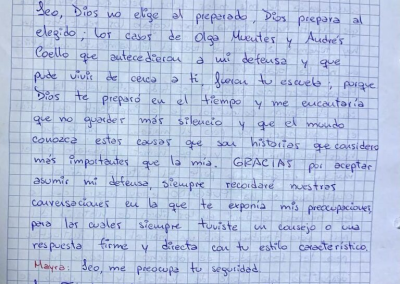 Leo, Dios no elige al preparado, Dios prepara al
elegido; los casos de Olga Muentes y Andrés
Coello que antecedieron a mi defensa y que
pude vivir de cerca a ti, fueron tu escuela; porque
Dios te preparó en el tiempo y me encantaría
que no guardes más silencio y que el mundo
conozca estas causas que son historias que considero
más importantes que la mía. GRACIAS por aceptar
asumir mi defensa, siempre recordaré nuestras
conversaciones en la que te exponía mis preocupaciones
para las cuales siempre tuviste un consejo o una
respuesta firme y directa con tu estilo característico.
Mayra: Leo, me preocupa tu seguridad